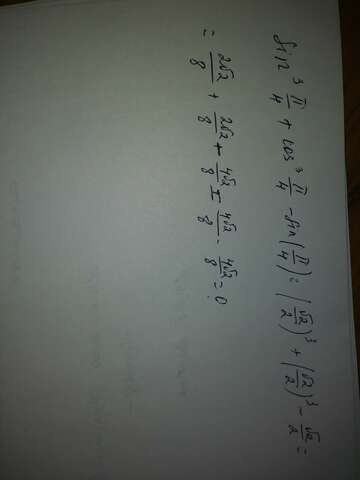 sin³ π/4 + cos³ π/4 - sin(π/4) = (√2/2)³ + (√2/2)³ - √2/2 =
= 2√2/8 + 2√2/8 - 4√2/8 = 4√2/8 - 4√2/8 = 0